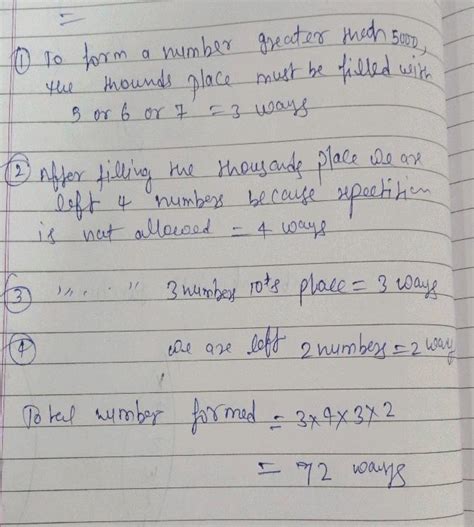 ① To form a number greater than 5000,
the thounds place must be filled with
5 or 6 or 7 = 3 ways
② After filling the thousands place we are
left 4 numbers because repetition
is not allowed = 4 ways
③ 〃 . . . . 〃 3 numbers 10ths place = 3 ways
④ we are left 2 numbers = 2 way
Total number formed = 3×4×3×2
= 72 ways